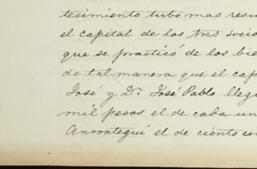 tecimiento tubo mas resu
el capital de los tres socio
que se practicó de los bie
de tal manera que el cap
José y Dn. José Pablo lleg
mil pesos el de cada un
Anrrátegui el de ciento cu